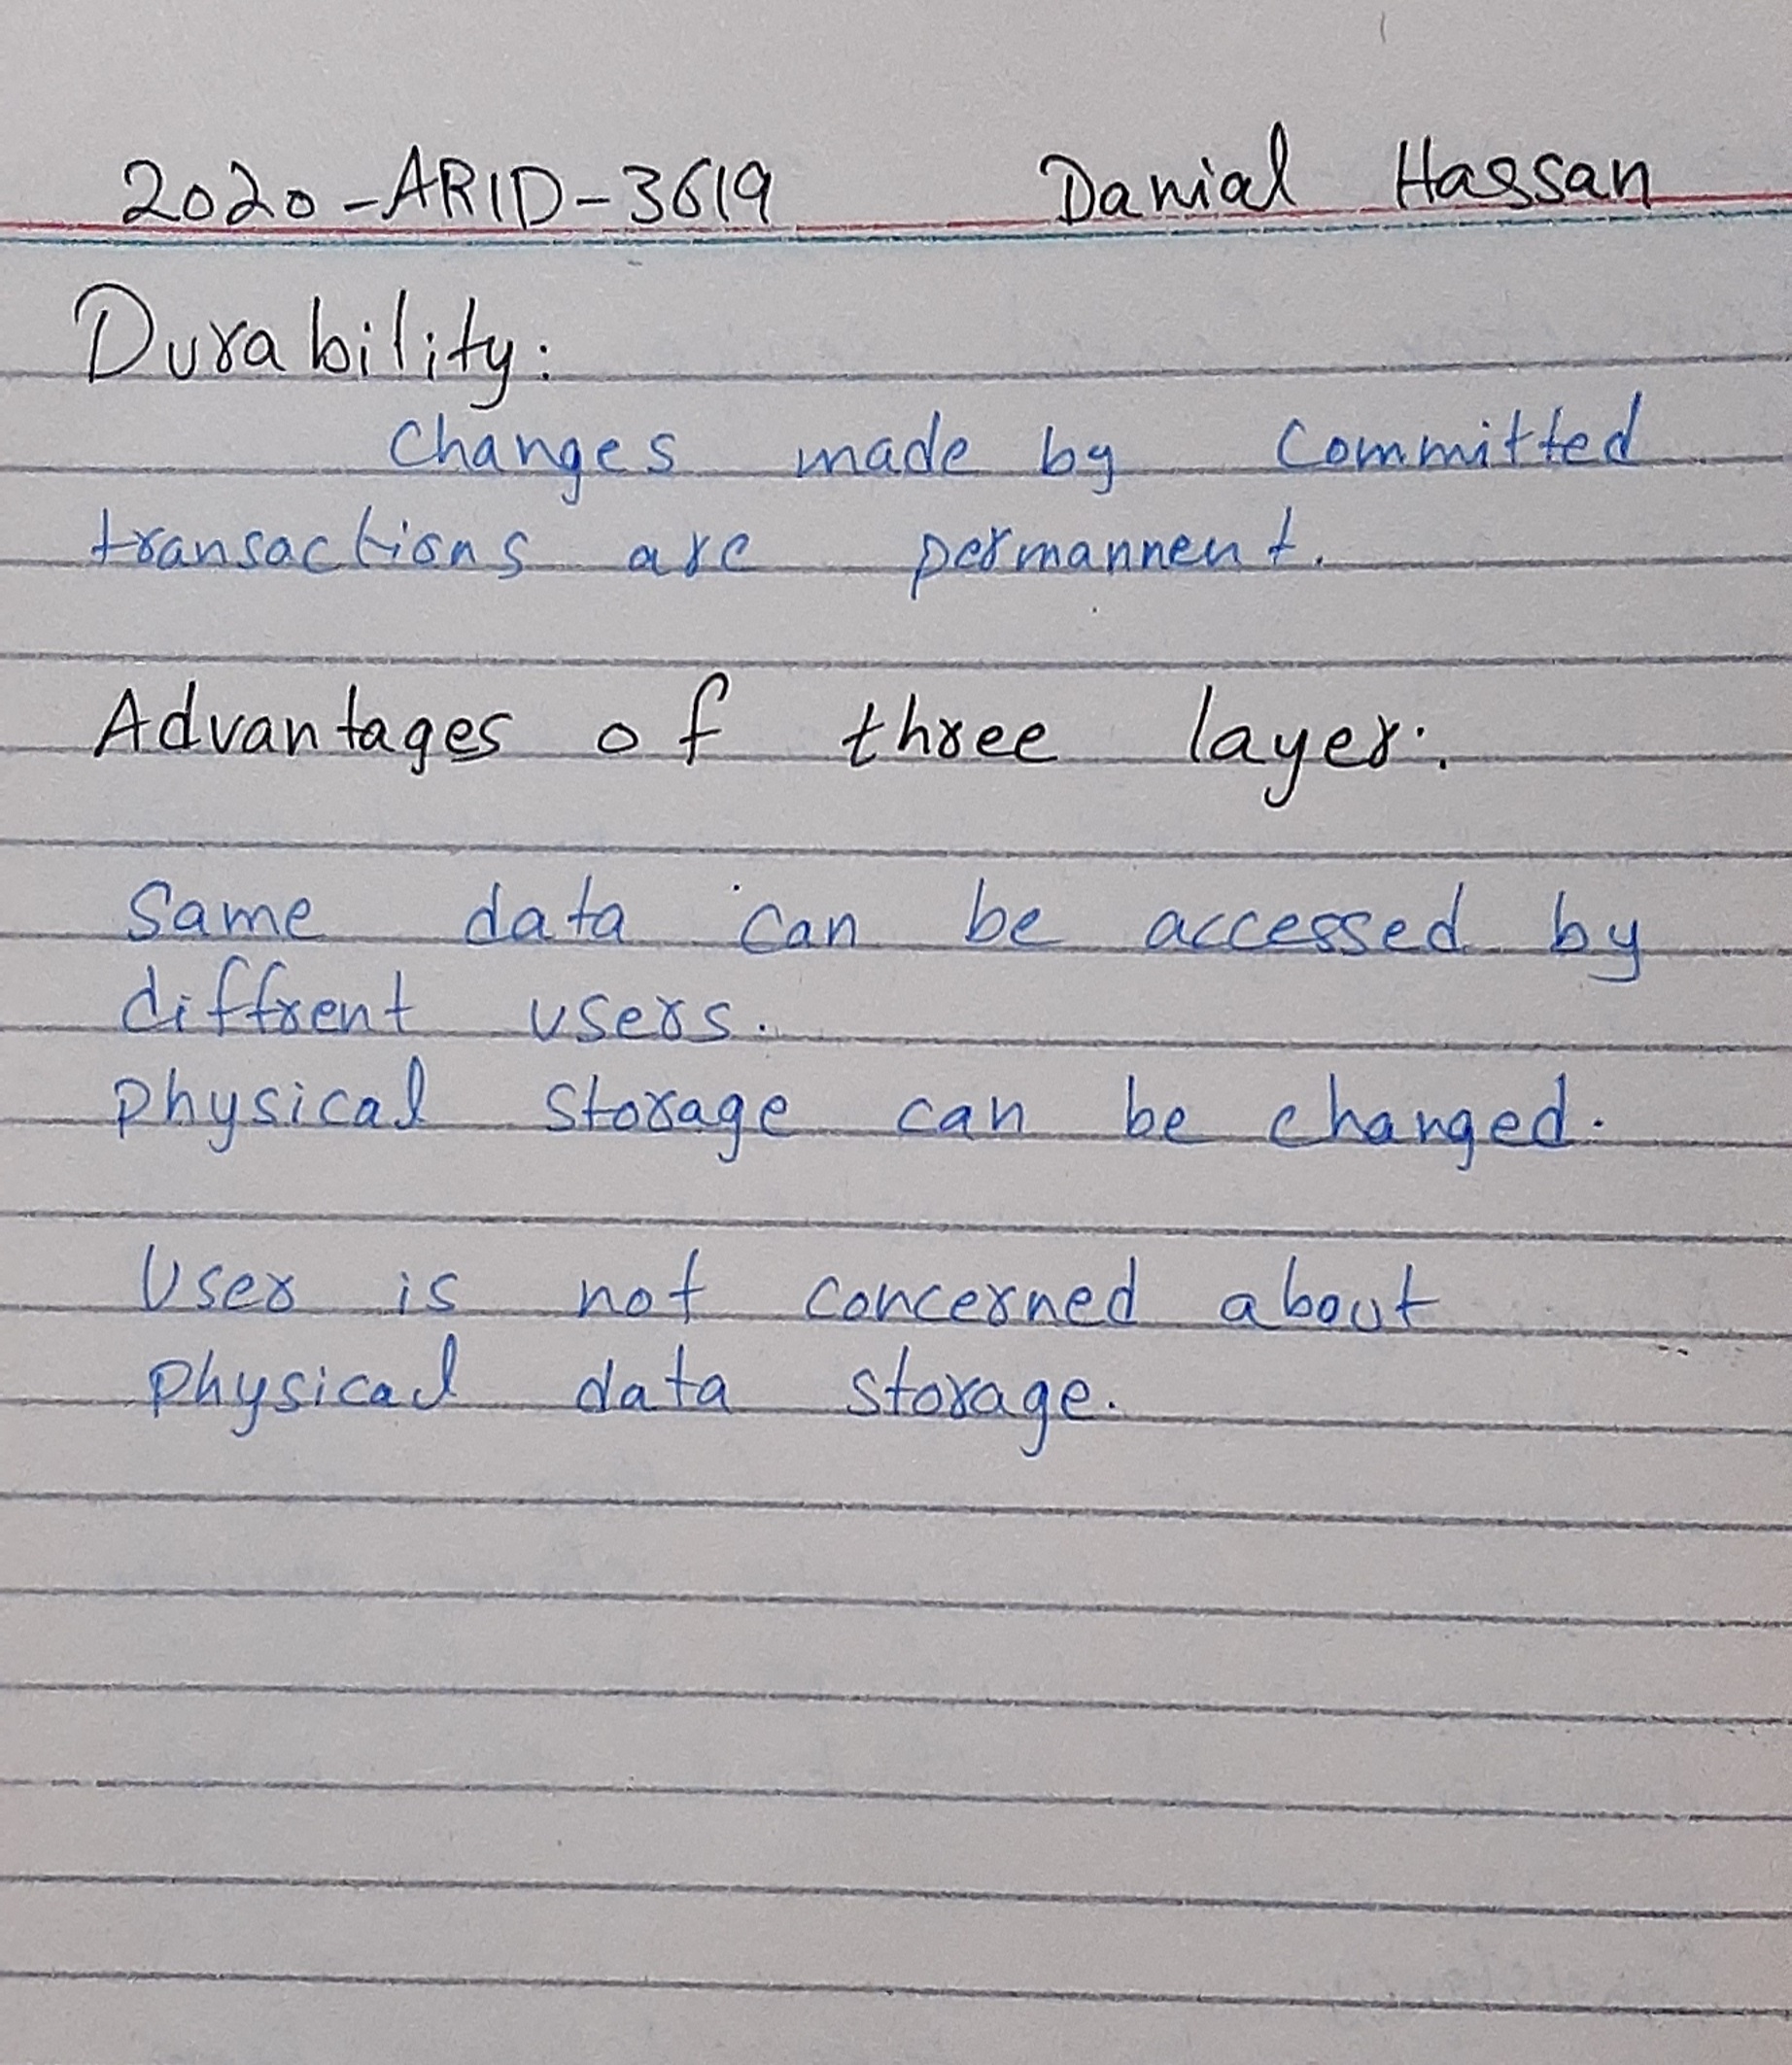 2020-ARID-3619 Danial Hassan
Durability:
Changes made by Committed
transactions are permannent.
Advantages of three layer:
Same data can be accessed by
diffrent users.
Physical Storage can be changed.
User is not concerned about
Physical data storage.